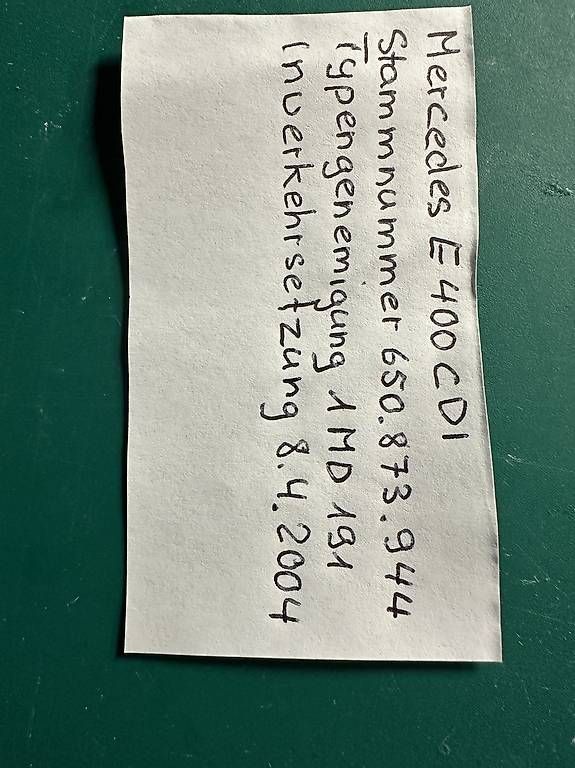 Mercedes E 400 CDI
Stammnummer 650.873.944
Typengenemigung 1MD 191
Inverkehrsetzung 8.4.2004